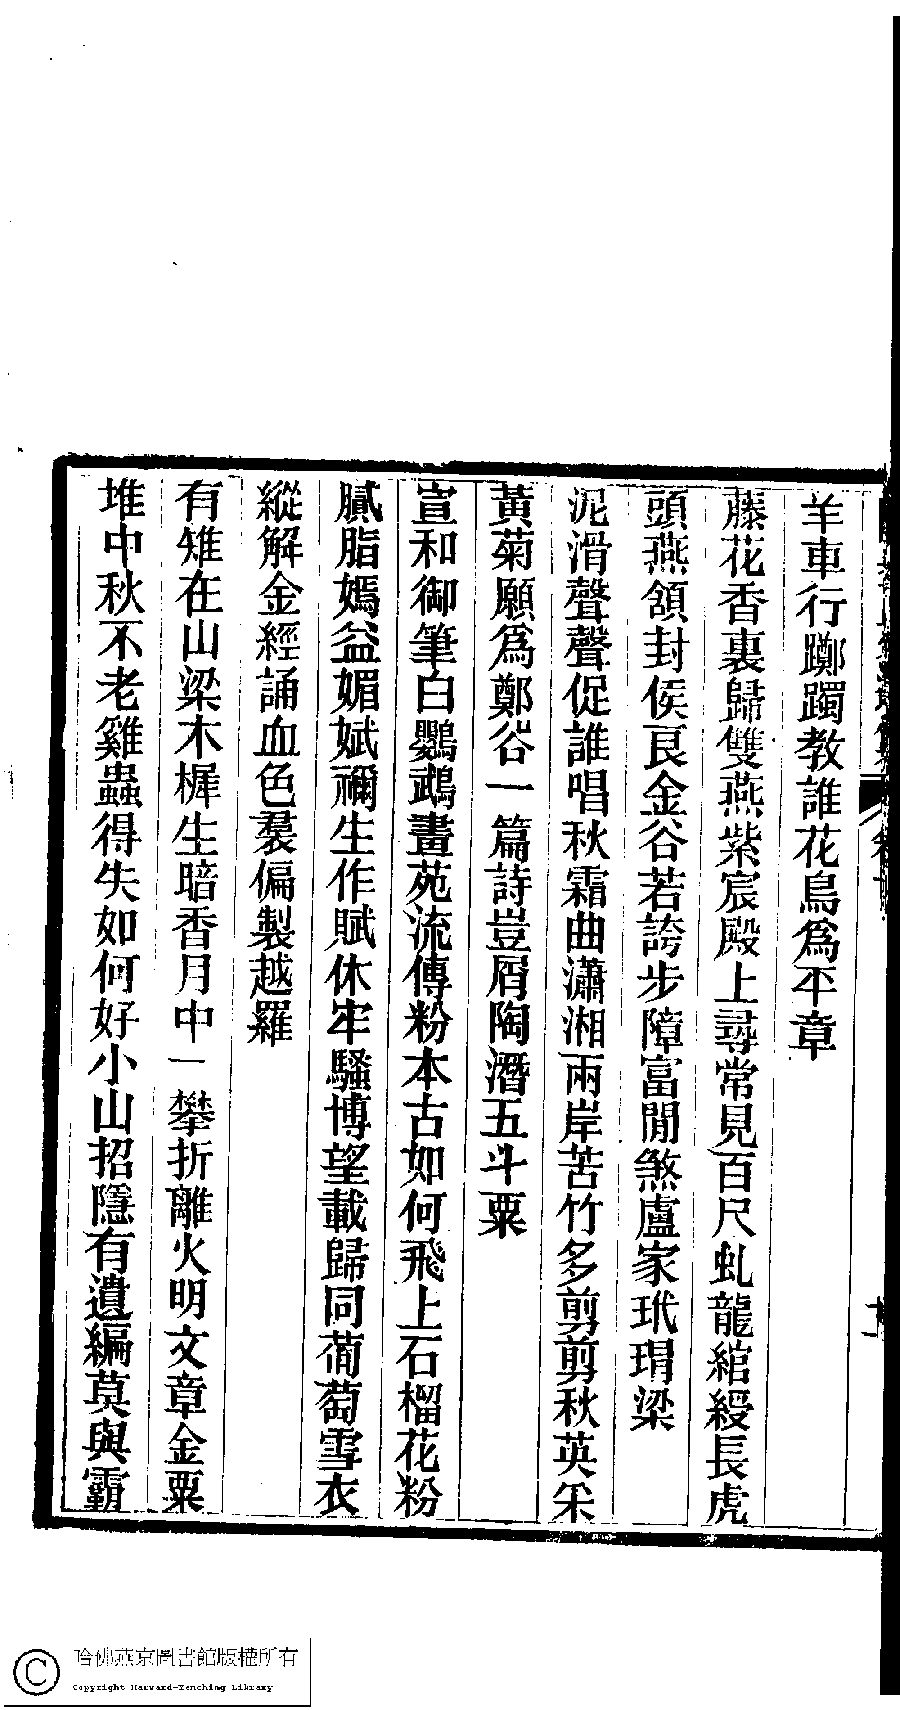 羊車行躑躅教誰花鳥為平章
藤花香裏歸雙燕紫宸殿上尋常見百尺虬龍綰綬長虎
頭燕頷封侯良金谷若誇步障富閒煞盧家玳瑁梁
泥滑聲聲促誰唱秋霜曲瀟湘兩岸苦竹多剪剪秋英采
黃菊願為鄭谷一篇詩豈屑陶潛五斗粟
宣和御筆白鸚鵡畫苑流傳粉本古如何飛上石榴花粉
膩脂嫣益媚娬禰生作賦休牢騷博望載歸同蔔萄雪衣
縱解金經誦血色羣偏製越羅
有雉在山梁木樨生暗香月中一攀折離火明文章金粟
堆中秋不老雞蟲得失如何好小山招隱有遺編莫與霸
哈佛燕京圖書館版權所有
Copyright Harvard-Yenching Library